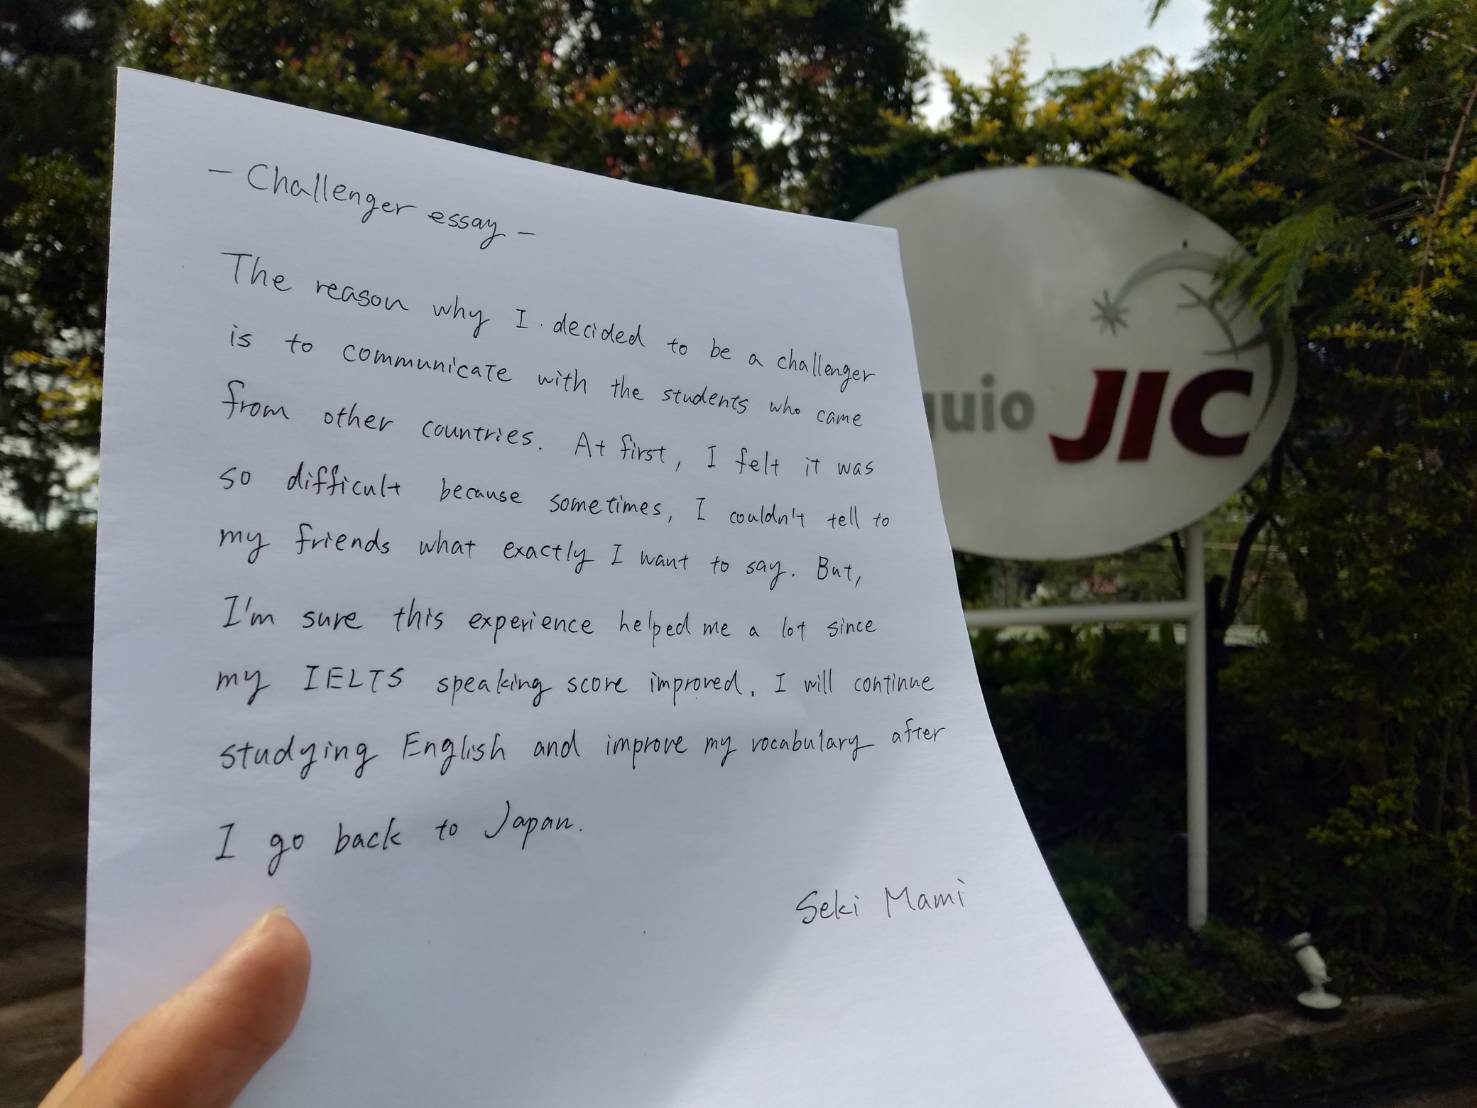 - Challenger essay -
The reason why I decided to be a challenger
is to communicate with the students who came
from other countries. At first, I felt it was
so difficult because sometimes, I couldn't tell to
my friends what exactly I want to say. But,
I'm sure this experience helped me a lot since
my IELTS speaking score improved. I will continue
studying English and improve my vocabulary after
I go back to Japan.
Seki Mami
uio JIC